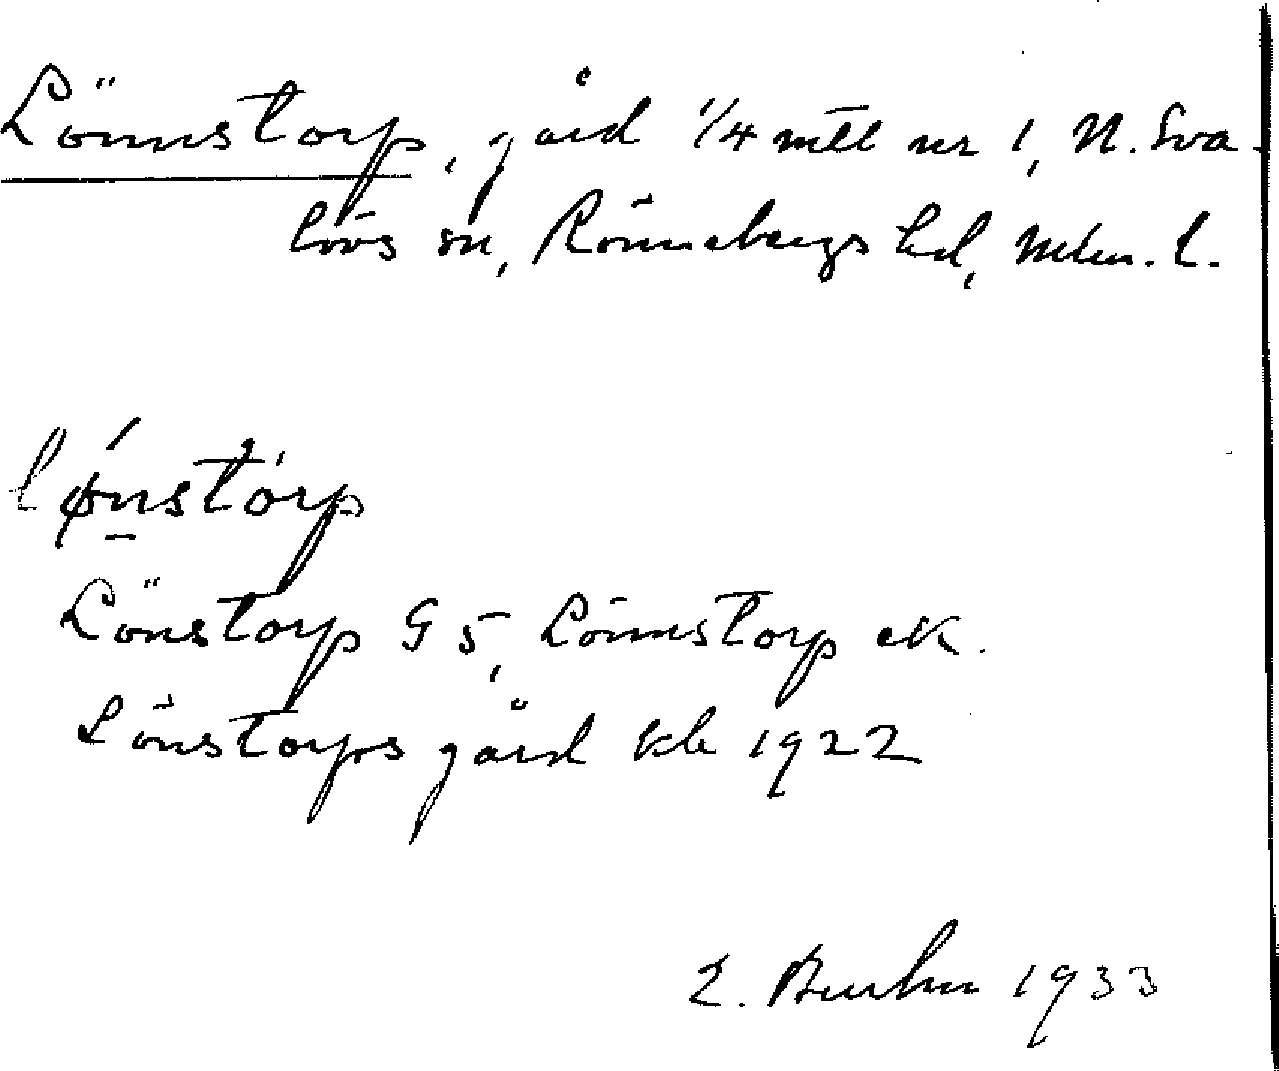 Lönnstorp, gård 1/4 mtl nr 1, N. Sva-
lövs sn, Rönnebergs hd, Mlm. l.
lǿnstórp
Lönstorp G 5, Lönnstorp eK.
Lönstorps gård kb 1922
1933